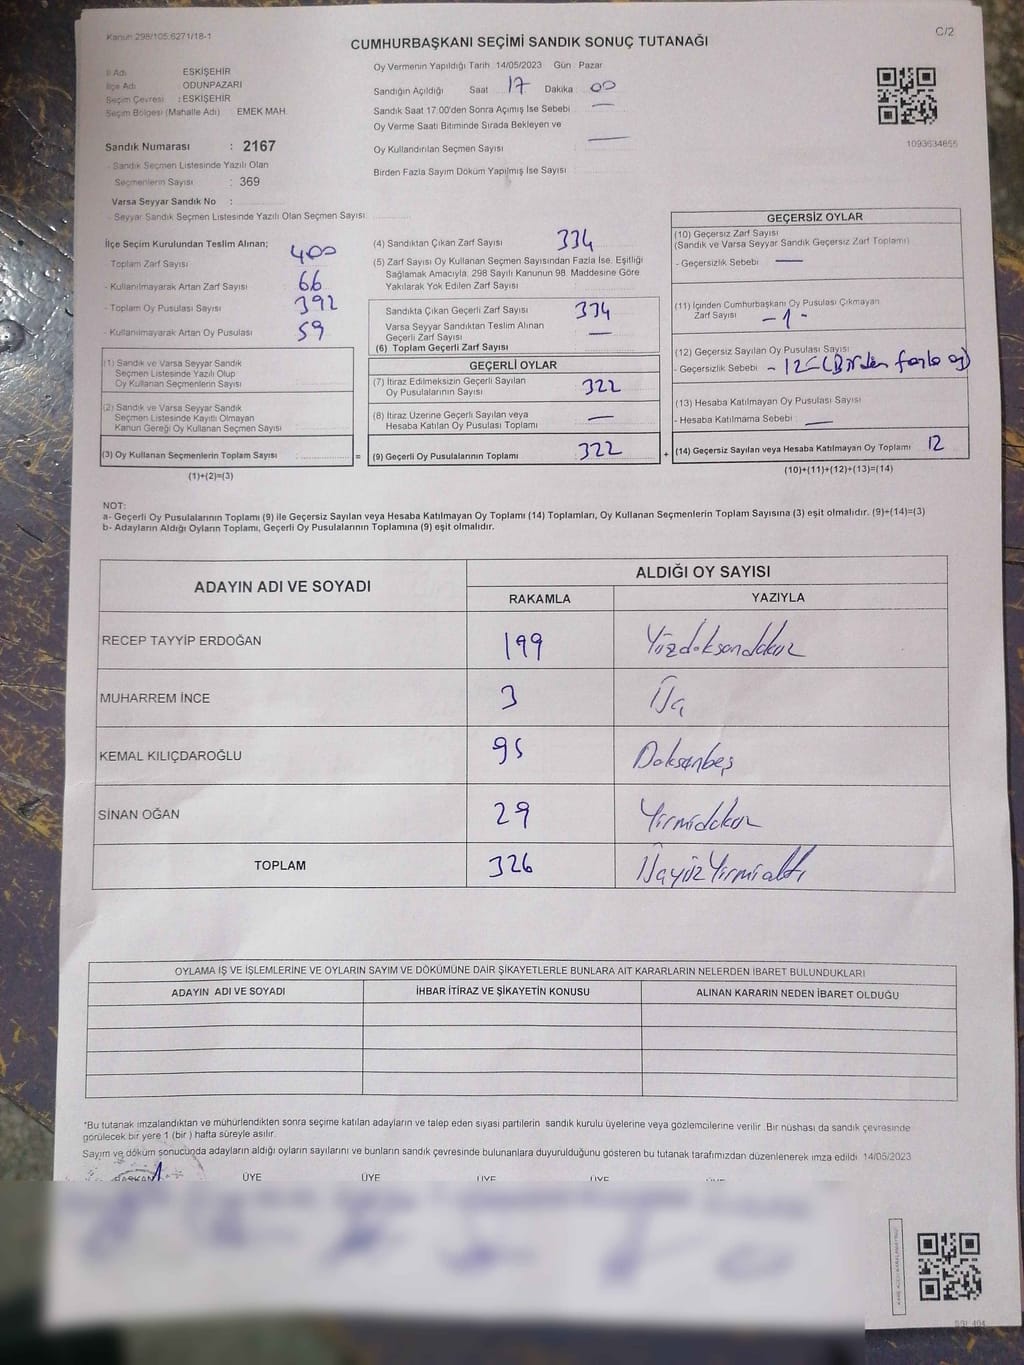 Kanun 298/105.6271/18-1
C/2
CUMHURBAŞKANI SEÇİMİ SANDIK SONUÇ TUTANAĞI
İl Adı ESKİŞEHİR
İlçe Adı ODUNPAZARI
Seçim Çevresi : ESKİŞEHİR
Seçim Bölgesi (Mahalle Adı) EMEK MAH.
Sandık Numarası : 2167
- Sandık Seçmen Listesinde Yazılı Olan
Seçmenlerin Sayısı : 369
Varsa Seyyar Sandık No :
- Seyyar Sandık Seçmen Listesinde Yazılı Olan Seçmen Sayısı
Oy Vermenin Yapıldığı Tarih 14/05/2023 Gün Pazar
Sandığın Açıldığı Saat 17 Dakika 00
Sandık Saat 17.00'den Sonra Açımış İse Sebebi —
Oy Verme Saati Bitiminde Sırada Bekleyen ve
Oy Kullandırılan Seçmen Sayısı —
Birden Fazla Sayım Döküm Yapılmış İse Sayısı
1093634655
İlçe Seçim Kurulundan Teslim Alınan;
Toplam Zarf Sayısı 400
- Kullanılmayarak Artan Zarf Sayısı 66
- Toplam Oy Pusulası Sayısı 392
- Kullanılmayarak Artan Oy Pusulası 59
(1) Sandık ve Varsa Seyyar Sandık
Seçmen Listesinde Yazılı Olup
Oy Kullanan Seçmenlerin Sayısı
(2) Sandık ve Varsa Seyyar Sandık
Seçmen Listesinde Kayıtlı Olmayan
Kanun Gereği Oy Kullanan Seçmen Sayısı
(3) Oy Kullanan Seçmenlerin Toplam Sayısı =
(1)+(2)=(3)
(4) Sandıktan Çıkan Zarf Sayısı 334
(5) Zarf Sayısı Oy Kullanan Seçmen Sayısından Fazla İse, Eşitliği
Sağlamak Amacıyla, 298 Sayılı Kanunun 98. Maddesine Göre
Yakılarak Yok Edilen Zarf Sayısı
Sandıkta Çıkan Geçerli Zarf Sayısı 334
Varsa Seyyar Sandıktan Teslim Alınan
Geçerli Zarf Sayısı —
(6) Toplam Geçerli Zarf Sayısı
GEÇERLİ OYLAR
(7) İtiraz Edilmeksizin Geçerli Sayılan
Oy Pusulalarının Sayısı 322
(8) İtiraz Üzerine Geçerli Sayılan veya
Hesaba Katılan Oy Pusulası Toplamı —
(9) Geçerli Oy Pusulalarının Toplamı 322 +
GEÇERSİZ OYLAR
(10) Geçersiz Zarf Sayısı
(Sandık ve Varsa Seyyar Sandık Geçersiz Zarf Toplamı)
- Geçersizlik Sebebi —
(11) İçinden Cumhurbaşkanı Oy Pusulası Çıkmayan
Zarf Sayısı -1-
(12) Geçersiz Sayılan Oy Pusulası Sayısı
- Geçersizlik Sebebi - 12 - (Birden fazla oy)
(13) Hesaba Katılmayan Oy Pusulası Sayısı
- Hesaba Katılmama Sebebi —
(14) Geçersiz Sayılan veya Hesaba Katılmayan Oy Toplamı 12
(10)+(11)+(12)+(13)=(14)
NOT:
a- Geçerli Oy Pusulalarının Toplamı (9) ile Geçersiz Sayılan veya Hesaba Katılmayan Oy Toplamı (14) Toplamları, Oy Kullanan Seçmenlerin Toplam Sayısına (3) eşit olmalıdır. (9)+(14)=(3)
b- Adayların Aldığı Oyların Toplamı, Geçerli Oy Pusulalarının Toplamına (9) eşit olmalıdır.
ADAYIN ADI VE SOYADI
ALDIĞI OY SAYISI
RAKAMLA YAZIYLA
RECEP TAYYİP ERDOĞAN 199 Yüzdoksandokuz
MUHARREM İNCE 3 Üç
KEMAL KILIÇDAROĞLU 95 Doksanbeş
SİNAN OĞAN 29 Yirmidokuz
TOPLAM 326 ÜçyüzYirmialtı
OYLAMA İŞ VE İŞLEMLERİNE VE OYLARIN SAYIM VE DÖKÜMÜNE DAİR ŞİKAYETLERLE BUNLARA AİT KARARLARIN NELERDEN İBARET BULUNDUKLARI
ADAYIN ADI VE SOYADI İHBAR İTİRAZ VE ŞİKAYETİN KONUSU ALINAN KARARIN NEDEN İBARET OLDUĞU
*Bu tutanak imzalandıktan ve mühürlendikten sonra seçime katılan adayların ve talep eden siyasi partilerin sandık kurulu üyelerine veya gözlemcilerine verilir .Bir nüshası da sandık çevresinde
görülecek bir yere 1 (bir ) hafta süreyle asılır.
Sayım ve döküm sonucunda adayların aldığı oyların sayılarını ve bunların sandık çevresinde bulunanlara duyurulduğunu gösteren bu tutanak tarafımızdan düzenlenerek imza edildi. 14/05/2023
BAŞKAN ÜYE ÜYE ÜYE ÜYE